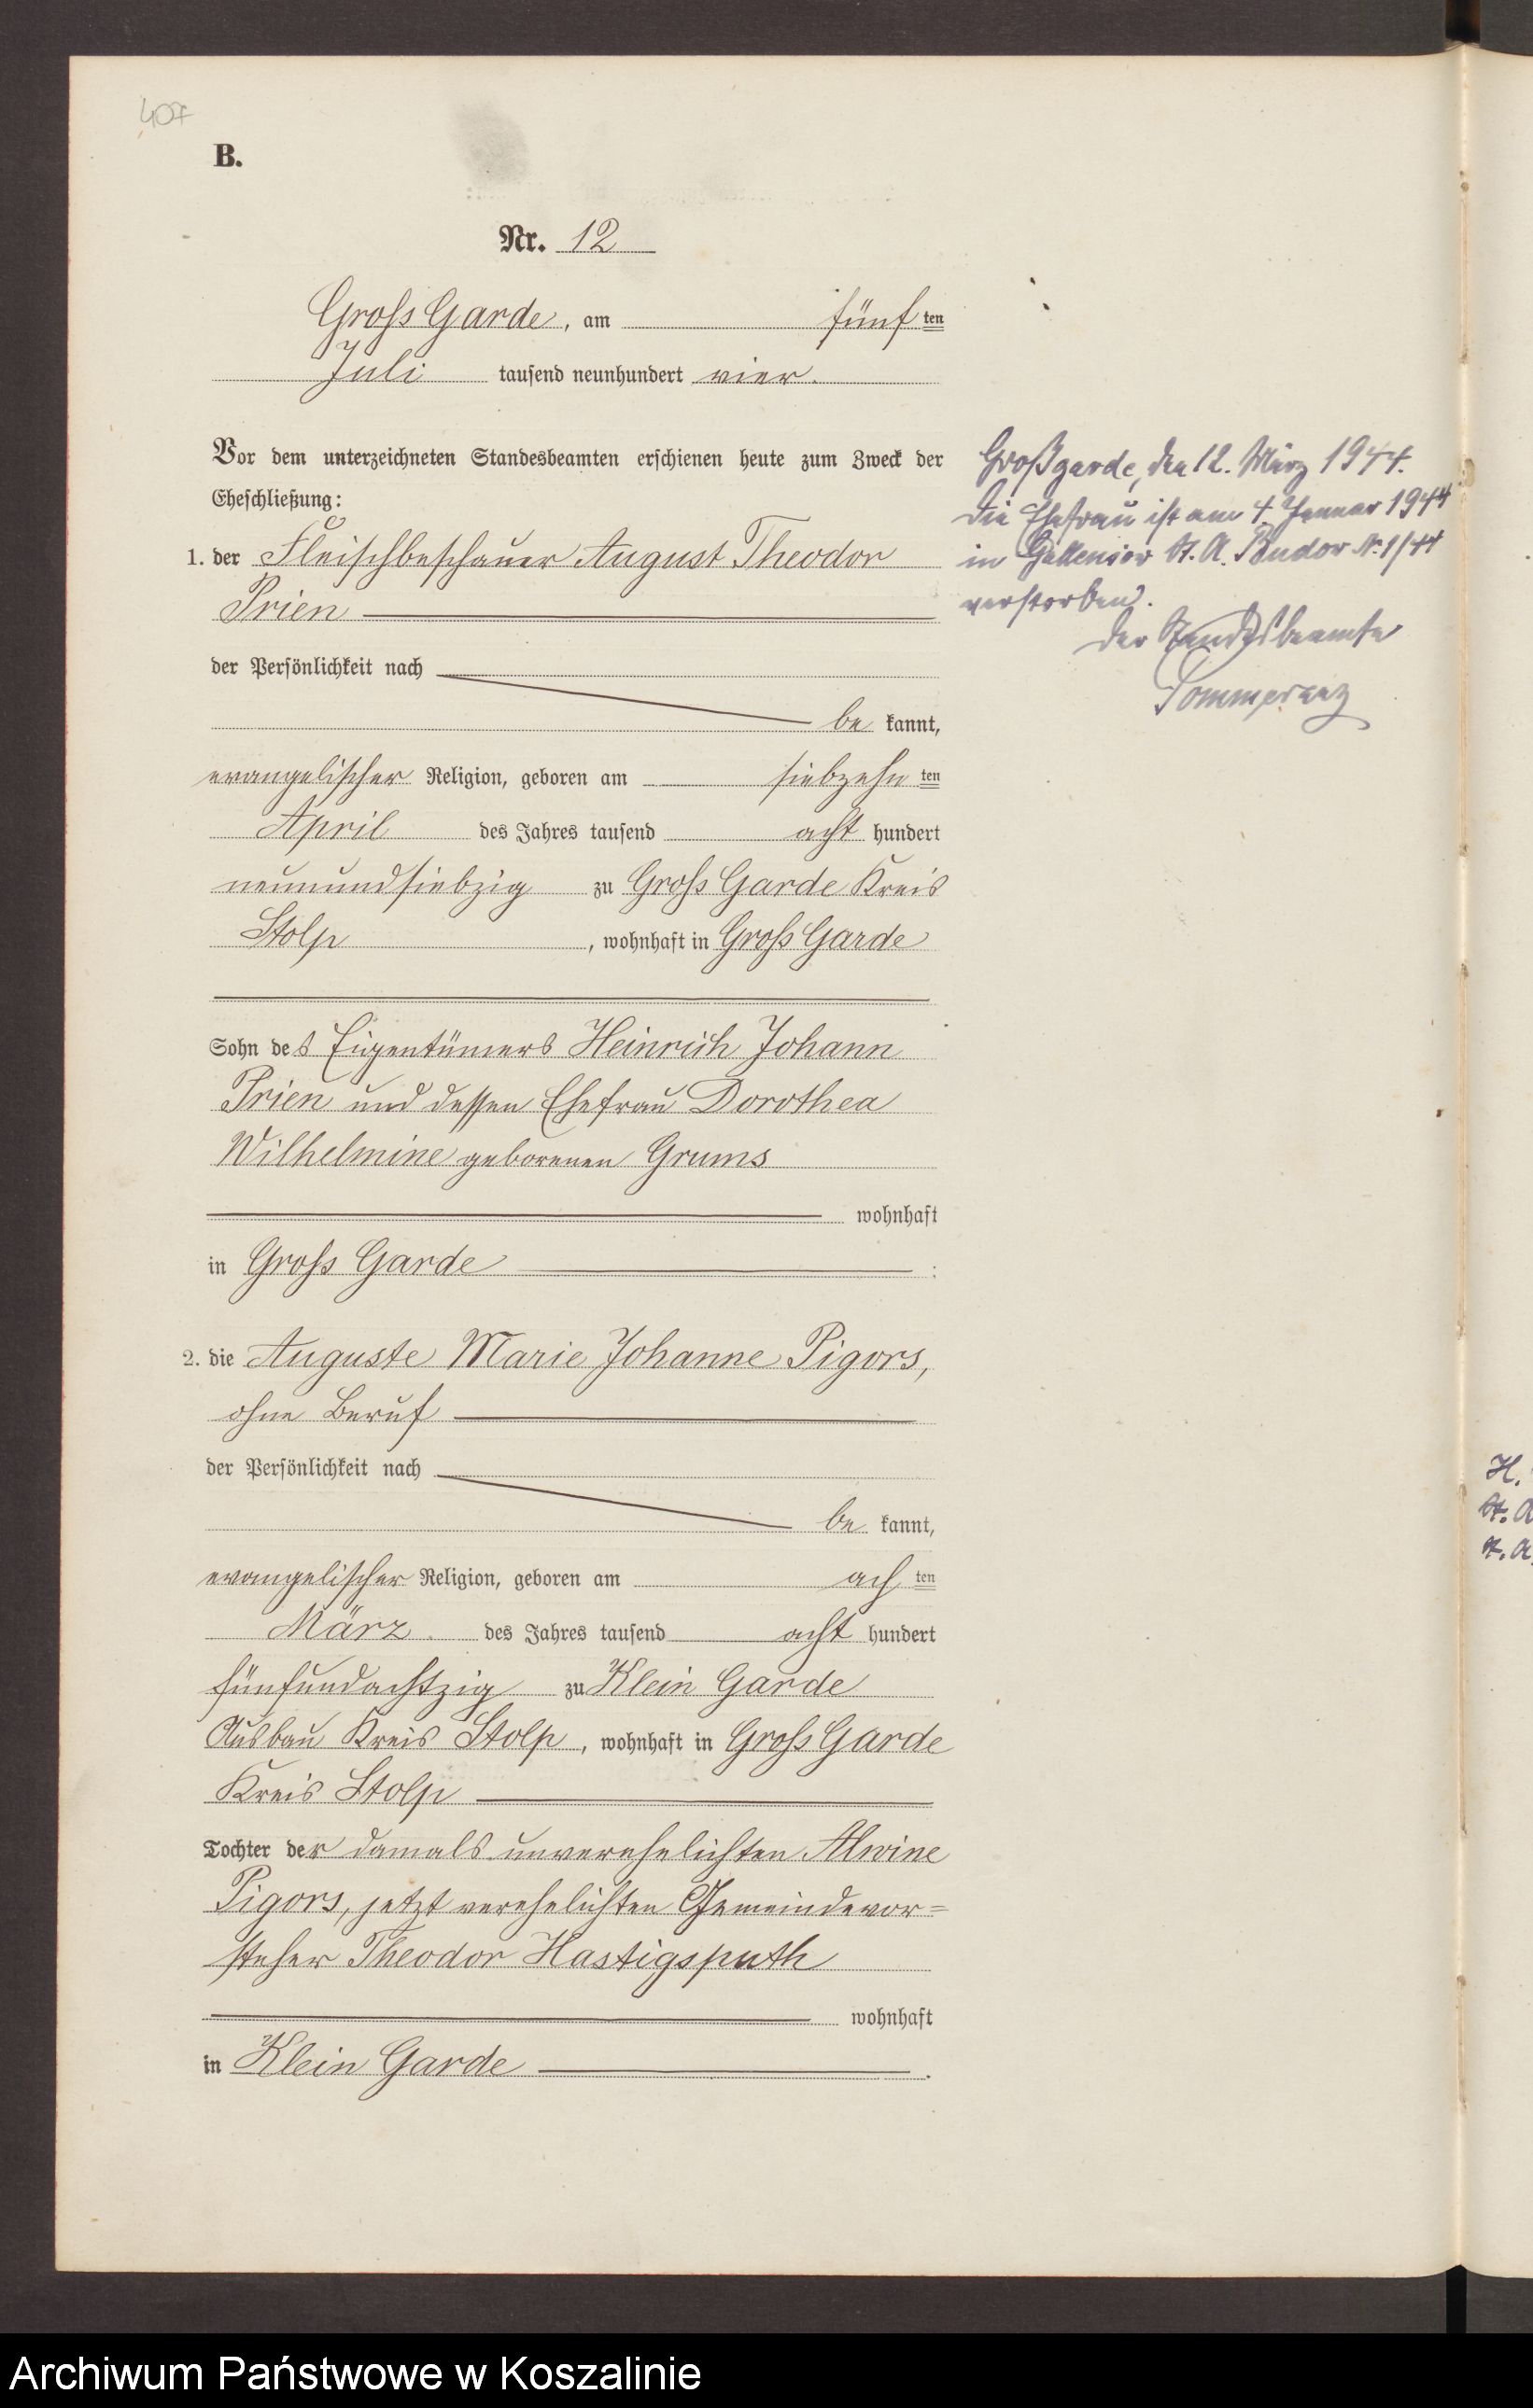 407
B.
Nr. 12
Gross Garde, am fünf ten
Juli tausend neunhundert vier.
Vor dem unterzeichneten Standesbeamten erschienen heute zum Zweck der
Eheschließung:
1. der Fleischbeschauer August Theodor
Prien
der Persönlichkeit nach
be kannt,
evangelischer Religion, geboren am siebzehn ten
April des Jahres tausend acht hundert
neunundsiebzig zu Gross Garde Kreis
Stolp, wohnhaft in Gross Garde
Sohn des Eigentümers Heinrich Johann
Prien und dessen Ehefrau Dorothea
Wilhelmine geborenen Grums
wohnhaft
in Gross Garde :
2. die Auguste Marie Johanne Pigors,
ohne Beruf
der Persönlichkeit nach
be kannt,
evangelischer Religion, geboren am ach ten
März des Jahres tausend acht hundert
fünfundachtzig zu Klein Garde
Ausbau Kreis Stolp, wohnhaft in Gross Garde
Kreis Stolp
Tochter der damals unverehelichten Alwine
Pigors, jetzt verehelichten Gemeindevor=
steher Theodor Hastigsputh
wohnhaft
in Klein Garde.
Großgarde, den 12. März 1944.
Die Ehefrau ist am 4. Januar 1944
in St. A. Budow Nr. 1/44
verstorben.
Der Standesbeamte
H.
St. A
St. A.
Archiwum Państwowe w Koszalinie